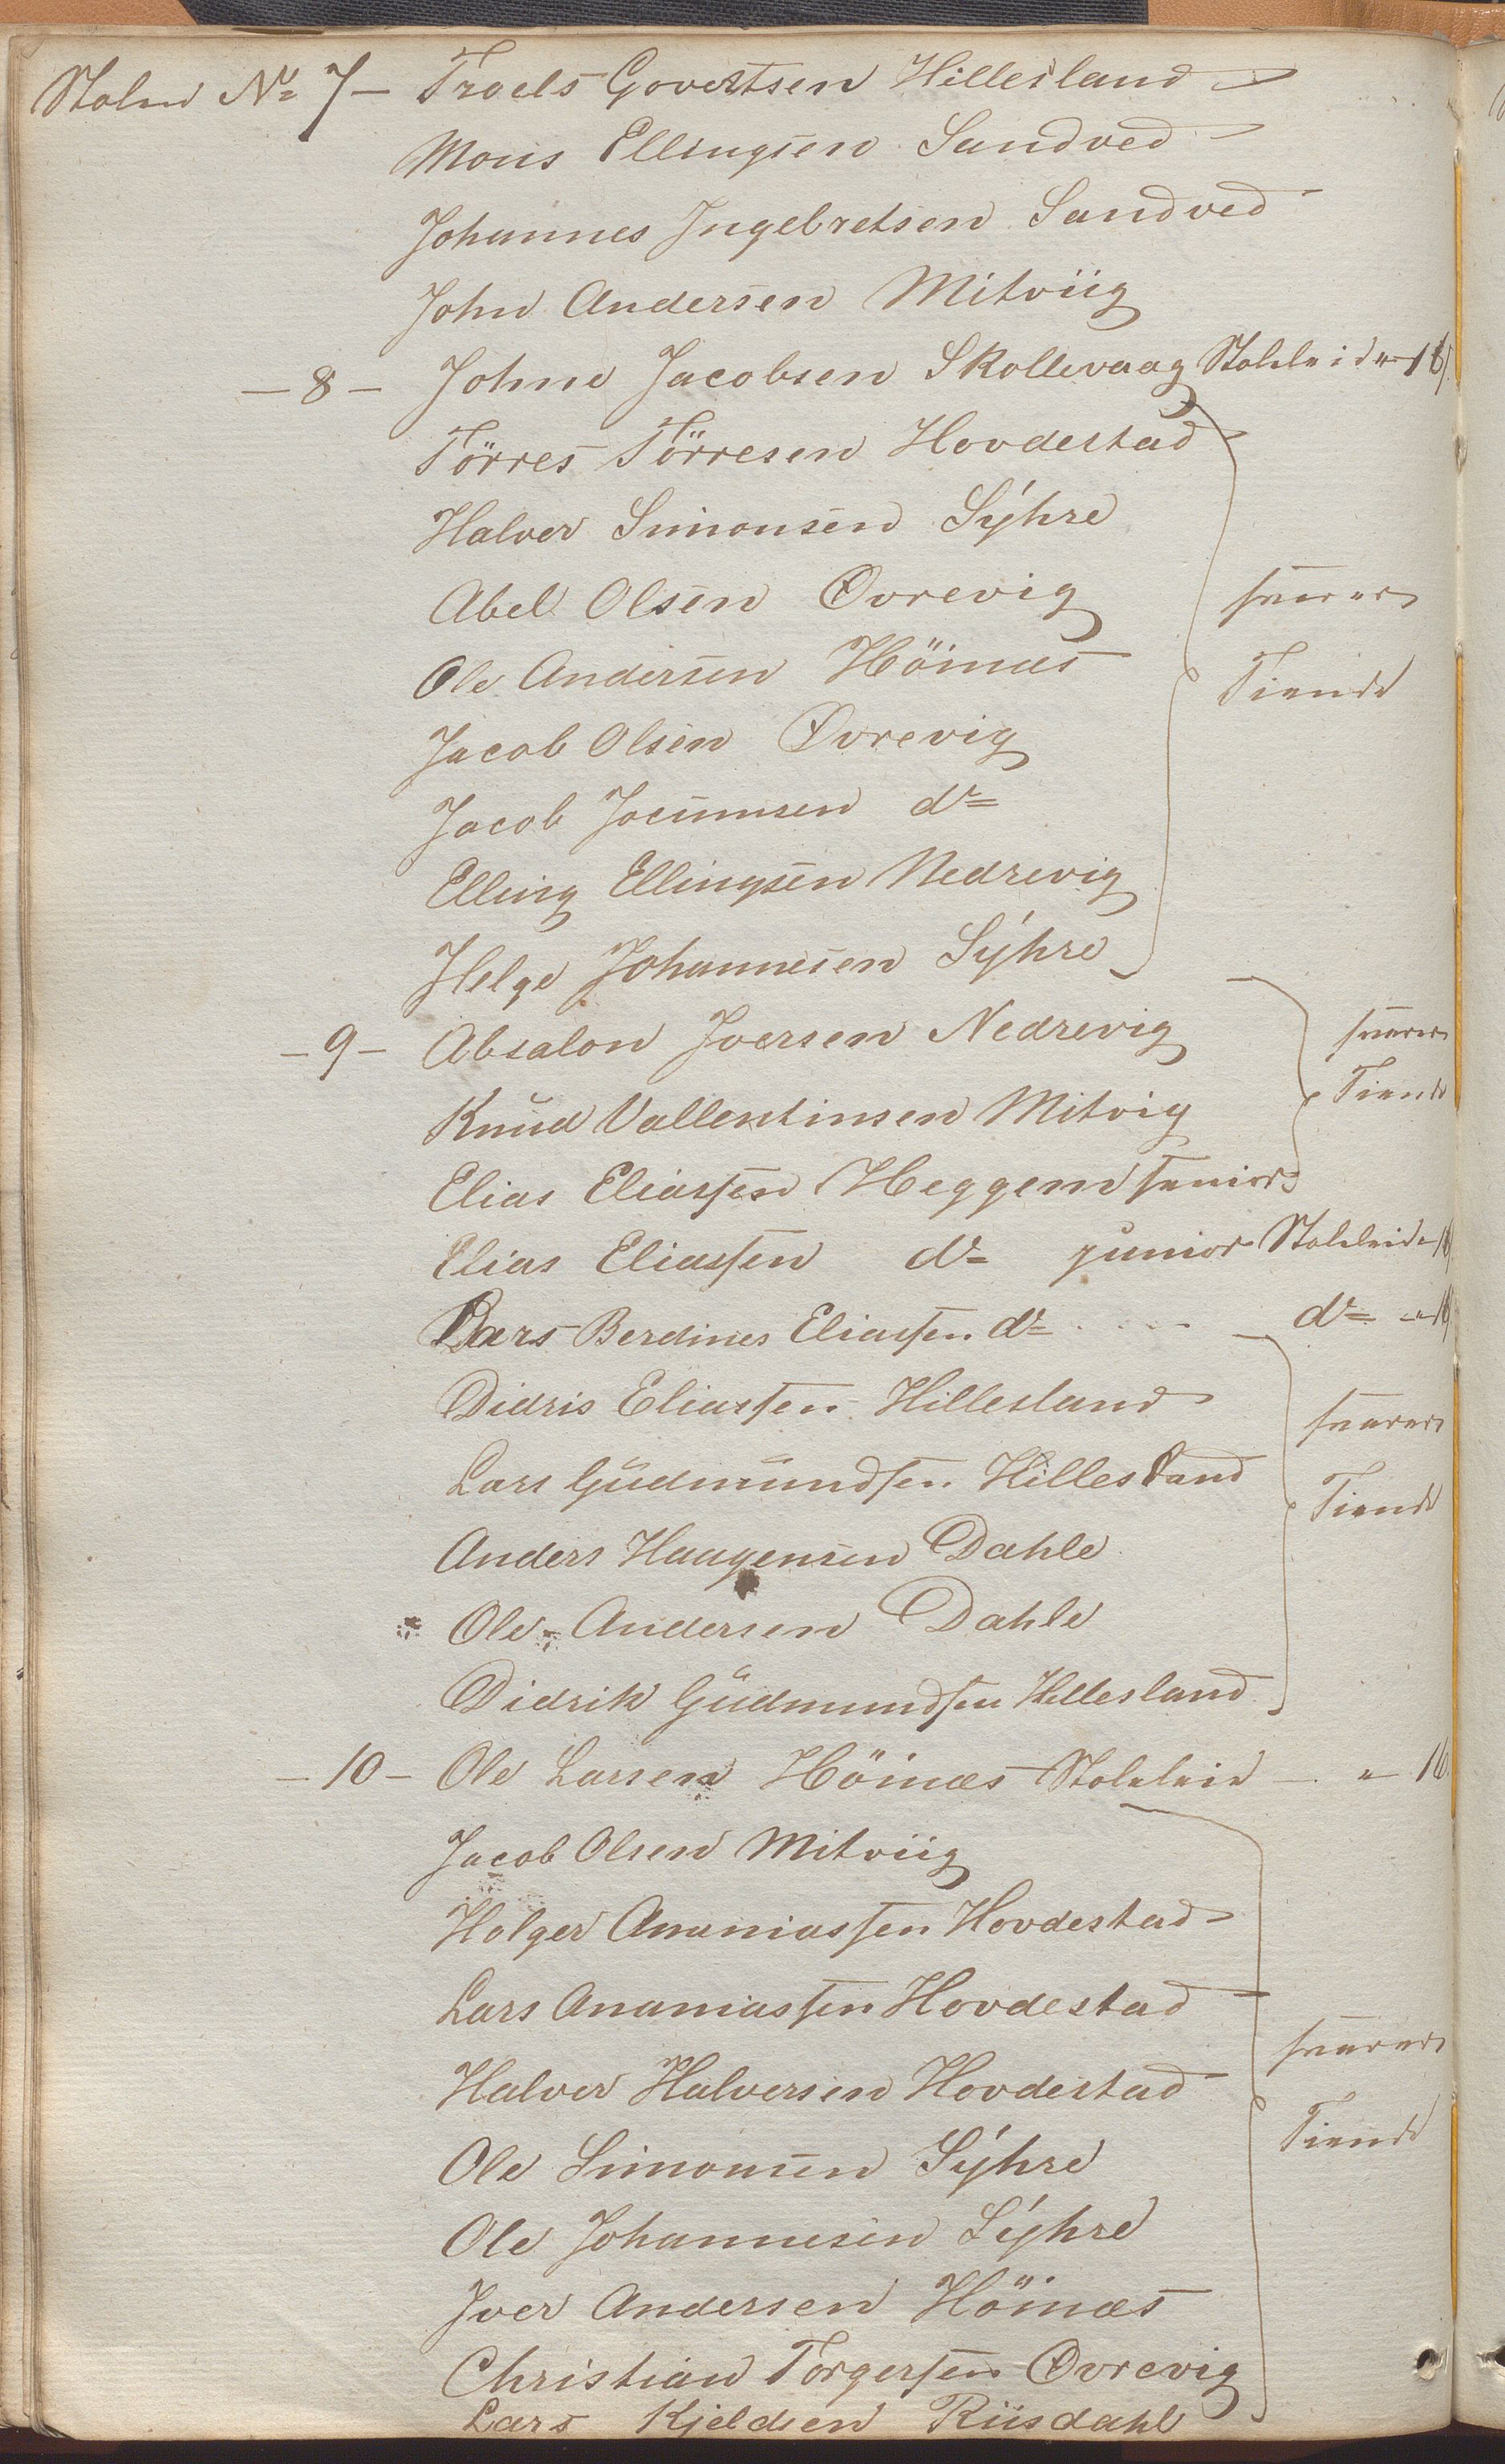 Stolen No 7 – Troels Govertsen Hillesland
Mons Ellingsen Sandved
Johannes Ingebretsen Sandved
John Andersen Mitviig
– 8 – Johne Jacobsen Skollevaag Stoleleie " 16
Törres Törresen Hovdestad
Halver Simonsen Sÿhre
Abel Olsen Ovrevig svarer
Ole Andersen Höinæs Tiende
Jacob Olsen Øvrevig
Jacob Jocumsen do
Elling Ellingsen Nedrevig
Helge Johannesen Sÿhre
– 9 – Absalon Iversen Nedrevig svarer
Knud Vallentinsen Mitvig Tiende
Elias Eliassen Heggem senior
Elias Eliassen do junior Stoleleie " 16
Lars Berdines Eliassen do do " 16
Didris Eliassen Hillesland
Lars Gudmundsen Hillesland svarer
Anders Haagensen Dahle Tiende
Ole Andersen Dahle
Didrik Gudmundsen Hillesland
– 10 – Ole Larsen Höinæs Stoleleie – " 16
Jacob Olsen Mitviig
Holger Ananiassen Hovdestad
Lars Ananiassen Hovdestad
Halver Halversen Hovdestad svarer
Ole Simonsen Sÿhre Tiende
Ole Johannesen Sÿhre
Iver Andersen Höinæs
Christian Torgersen Ovrevig
Lars Kjeldsen Riisdahl